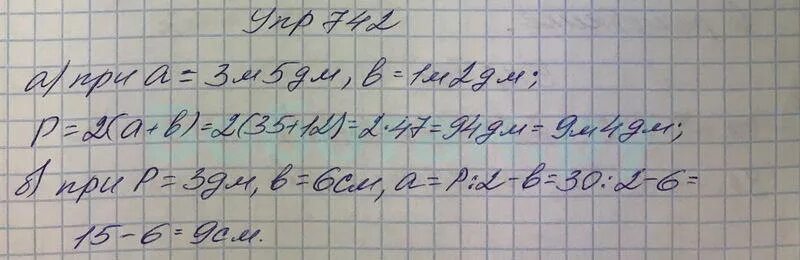 Упр 742
а) при а = 3м5дм, в = 1м2дм;
Р = 2(а+в) = 2(35+12) = 2·47 = 94дм = 9м4дм;
б) при Р = 3дм, в = 6см, а = Р:2-в = 30:2-6 =
15-6 = 9см.